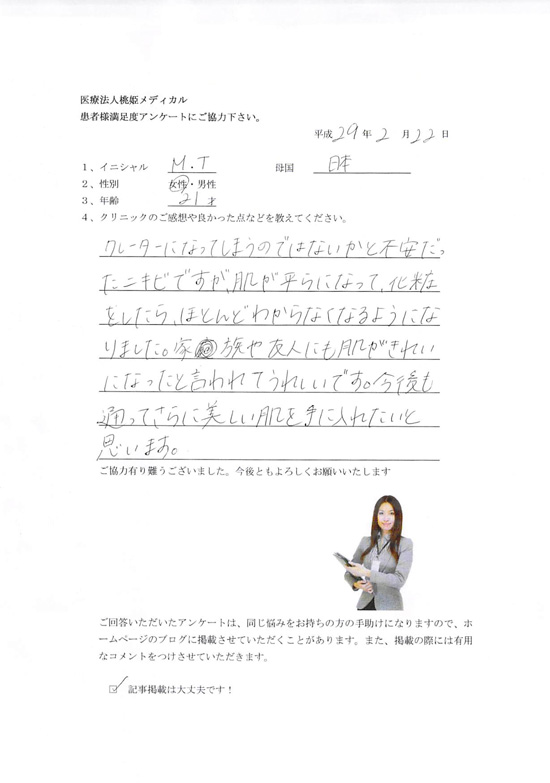 医療法人桃姫メディカル
患者様満足度アンケートにご協力下さい。
平成 29 年 2 月 22 日
1、イニシャル M.T 母国 日本
2、性別 女性・男性
3、年齢 21 才
4、クリニックのご感想や良かった点などを教えてください。
クレーターになってしまうのではないかと不安だっ
たニキビですが、肌が平らになって、化粧
をしたら、ほとんどわからなくなるようにな
りました。家族や友人にも肌がきれい
になったと言われてうれしいです。今後も
通ってさらに美しい肌を手に入れたいと
思います。
ご協力有り難うございました。今後ともよろしくお願いいたします
ご回答いただいたアンケートは、同じ悩みをお持ちの方の手助けになりますので、ホ
ームページのブログに掲載させていただくことがあります。また、掲載の際には有用
なコメントをつけさせていただきます。
☑ 記事掲載は大丈夫です！